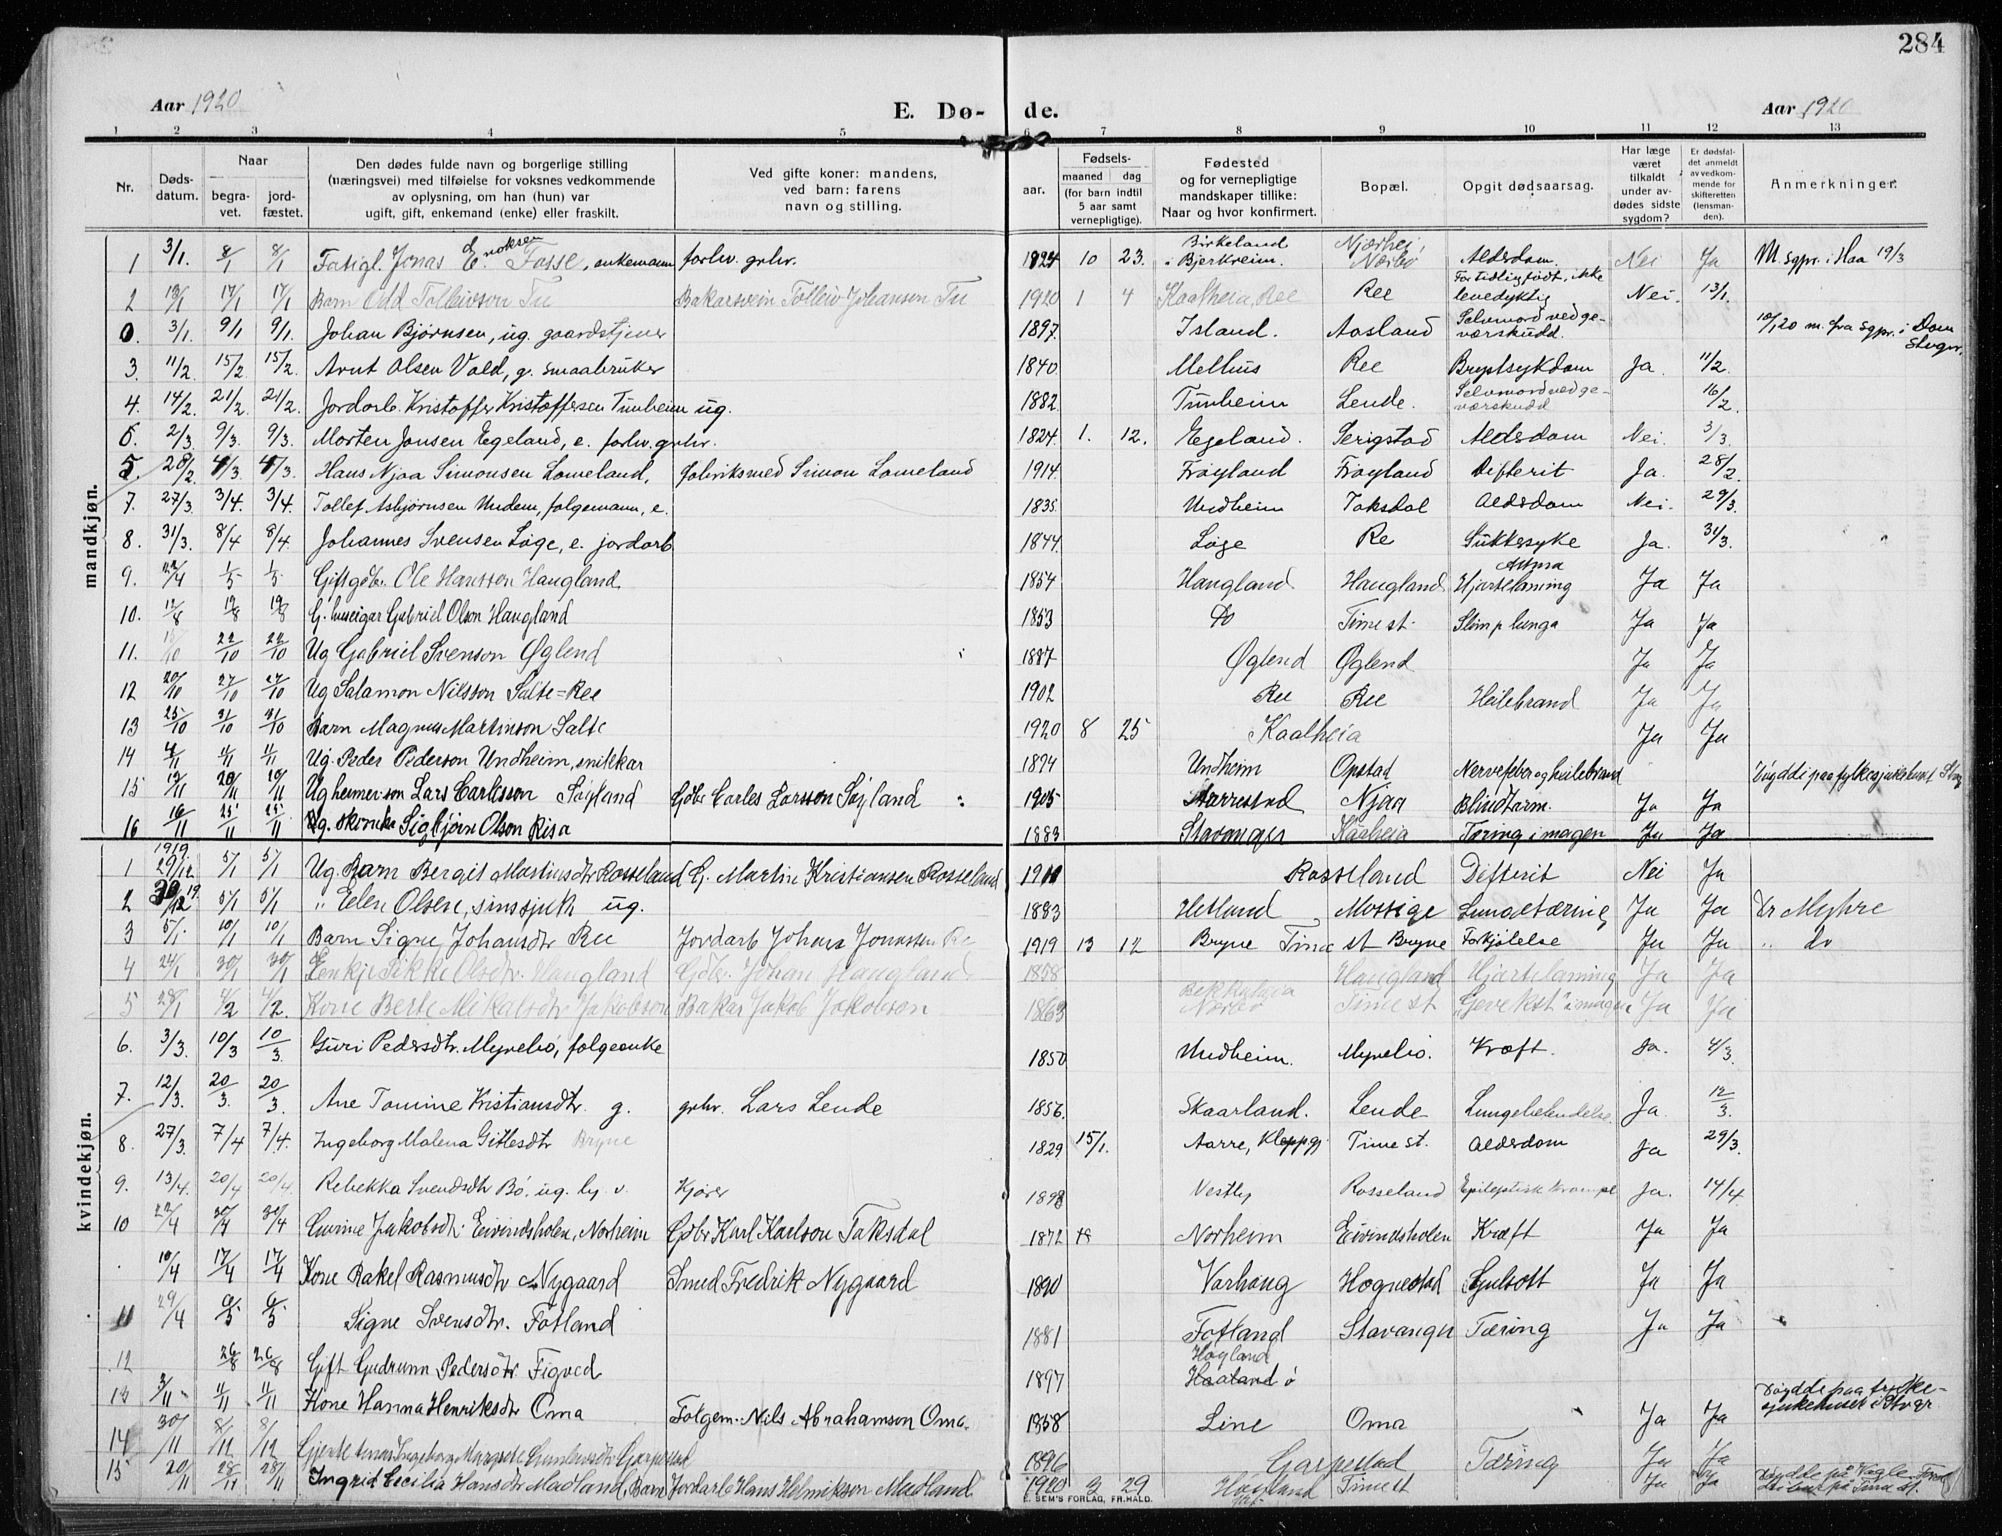 284
Aar 1920 E. Dø- de. Aar 1920
1 2 3 4 5 6 7 8 9 10 11 12 13
Nr.
Døds-
datum.
Naar
begra-
vet.
jord-
fæstet.
Den dødes fulde navn og borgerlige stilling
(næringsvei) med tilføielse for voksnes vedkommende
av oplysning, om han (hun) var
ugift, gift, enkemand (enke) eller fraskilt.
Ved gifte koner: mandens,
ved barn: farens
navn og stilling.
aar.
Fødsels-
maaned dag
(for barn indtil
5 aar samt
vernepligtige).
Fødested
og for vernepligtige
mandskaper tillike:
Naar og hvor konfirmert.
Bopæl.
Opgit dødsaarsag.
Har læge
været
tilkaldt
under av-
dødes sidste
sygdom?
Er dødsfal-
det anmeldt
av vedkom-
mende for
skifteretten
(lensman-
den).
Anmerkninger.
mandkjøn.
1 3/1. 8/1 8/1 Fatigl. Jonas Enoksen Fosse, enkemann forhv. grbr. 1824 10 23. Birkeland i Bjerkreim. Njærhei, Nærbø Aldsdom. Nei Ja M. sgpr. i Haa 19/3
2 13/1 17/1 17/1 Barn Odd Tolleivson Tu Bakarsvein Tolleiv Johansen Tu 1920 1 4 Kaalheia, Ree Ree For tidlig født, ikke levedyktig Nei. 13/1.
0. 3/1. 9/1 9/1. Johan Bjørnsen, ug. gaardstjener 1897. Island. Aasland Selvmord ved ge-værskudd. 10/1 20 m. fra sgpr. i Dom Stvgr.
3. 11/2. 15/2 15/2. Arnt Olsen Vold, g. smaabruker 1840 Melhus Ree Brystsykdom Ja. 11/2.
4. 14/2. 21/2. 21/2. Jordarb. Kristoffer Kristoffersen Tunheim ug. 1882. Tunheim Lende. Selvmord ved ge-værskudd 16/2.
6. 2/3. 9/3. 9/3. Morten Jonsen Egeland, e. forhv. grbr. 1824. 1. 12. Egeland. Serigstad Aldsdom Nei. 3/3.
5. 28/2. 4/3 4/3. Hans Njaa Simonsen Lomeland, fabriksmed Simon Lomeland 1914 Frøyland Frøyland Difterit Ja. 28/2.
7. 27/3. 3/4. 3/4. Tollef Asbjørnsen Undem, folgemann, e. 1835. Undheim Taksdal Aldsdom Nei. 29/3.
8. 31/3. 8/4 8/4. Johannes Svensen Løge, e. jordarb 1844. Løge Ree Sukkersyke Ja. 31/3.
9. 22/4 1/5 1/5. Gift gbr. Ole Hansson Haugland 1854 Haugland Haugland Astma Hjartelaming Ja Ja
10. 12/8 19/8 19/8 G. huseigar Gabriel Olson Haugland 1853 Do Time st. Slim p lunga Ja Ja
11. 22/10 22/10 Ug Gabriel Svenson Øglend 1887 Øglend Øglend Ja Ja
12 20/10 27/10 27/10 Ug Salamon Nilsson Salte=Ree 1902 Ree Ree Heilebrand Ja Ja
13 25/10 31/10 31/10 Barn Magnus Martinson Salte 1920 8 25 Kaalheia Ja Ja
14 4/11 11/11 11/11 Ug. Peder Pederson Undheim, snikkar 1894 Undheim Opstad Nervefeber og heilebrand
15 12/11 20/11 20/11 Ug heimerson Lars Carlsson Søyland Gbr Carles Larsson Søyland 1905 Aarrestad Njaa Blindtarm. Ja Ja
16 16/11 25/11 25/11 Ug. Sigbjørn Olson Risa 1883 Stavanger Kaalheia Tæring i magen Ja Ja
kvindekjøn.
1 1919 29/12. 5/1 5/1 Ug Barn Bergit Martinsdtr Rosseland G. Martin Kristiansen Rosseland Rosseland Difterit Nei Ja
2 5/1 5/1 " Elen Olsen, sinssjuk ug. 1883 Hetland Mossige Lungetæring Ja Ja Dr Myhre
3 5/1. 10/1 10/1 Barn Signe Johansdtr Ree Jordarb Johans Jonassen Ree 1919 13 12 Bryne Time st Bryne Forkjølelse Ja Ja " do
4 24/1 30/1 30/1 Enkje Sikke Olsdtr. Haugland Gbr. Johan Haugland 1858 Haugland Hjartelaming Ja Ja
5 28/1 4/2 4/2. Kone Berte Mikalsdtr Jakobson Bakar Jakob Jakobson 1863 Nærbø Time st Gevekst i magen Ja Ja
6. 3/3. 10/3 10/3 Guri Pedersdtr. Myrebø, folgeenke 1850 Undheim. Myrebø. Kræft. Ja. 4/3.
7. 12/3. 20/3. 20/3. Ane Tomine Kristiansdtr. g. grbr. Lars Lende 1856. Skaarland. Lende Lungebetendelse Ja. 12/3.
8. 27/3. 7/4 7/4. Ingeborg Malena Gitlesdtr Bryne 1829 15/1. Aarre, Kleppgj Time st. Aldsdom Ja 29/3.
9. 13/4. 20/4 20/4. Rebekka Svendsdtr Bø, ug. 1898 Vestly Rosseland Epileptisk krampe Ja. 14/4
10 22/4 30/4 30/4 Jakobsdtr Eivindsholen, Norheim Gbr Karl Karlson Taksdal 1872 Norheim Eivindsholen Kræft Ja Ja
10/4 17/4 17/4 Kone Rakel Rasmusdtr Nygaard Smed Fredrik Nygaard 1890 Varhaug Hognestad Gulsott Ja Ja
11 29/4 6/5 6/5 Signe Svensdtr. Fotland 1881 Fotland Stavanger Tæring Ja Ja
12 26/8 26/8 Gift Gudrunn Pedersdtr Figved 1897 Høyland
13 3/11 11/11 11/11 Kone Hanna Henriksdtr Oma Folgem. Nils Abrahamson Oma. 1858 Line Oma Ja Ja Døydde paa fylke-sjukehuset i Stvgr
14 30/11 8/12 8/12 Gjente Ingeborg Margrete Garpestad 1896 Garpestad Tæring Ja Ja
15 20/11 28/11 28/11 Ingrid Cecilia Hansdtr Mudland, Barn Jordarb Hans Helmikson Mudland 1920 3 29 Høyland Time st Ja Ja
E. SEM'S FORLAG, FR.HALD.